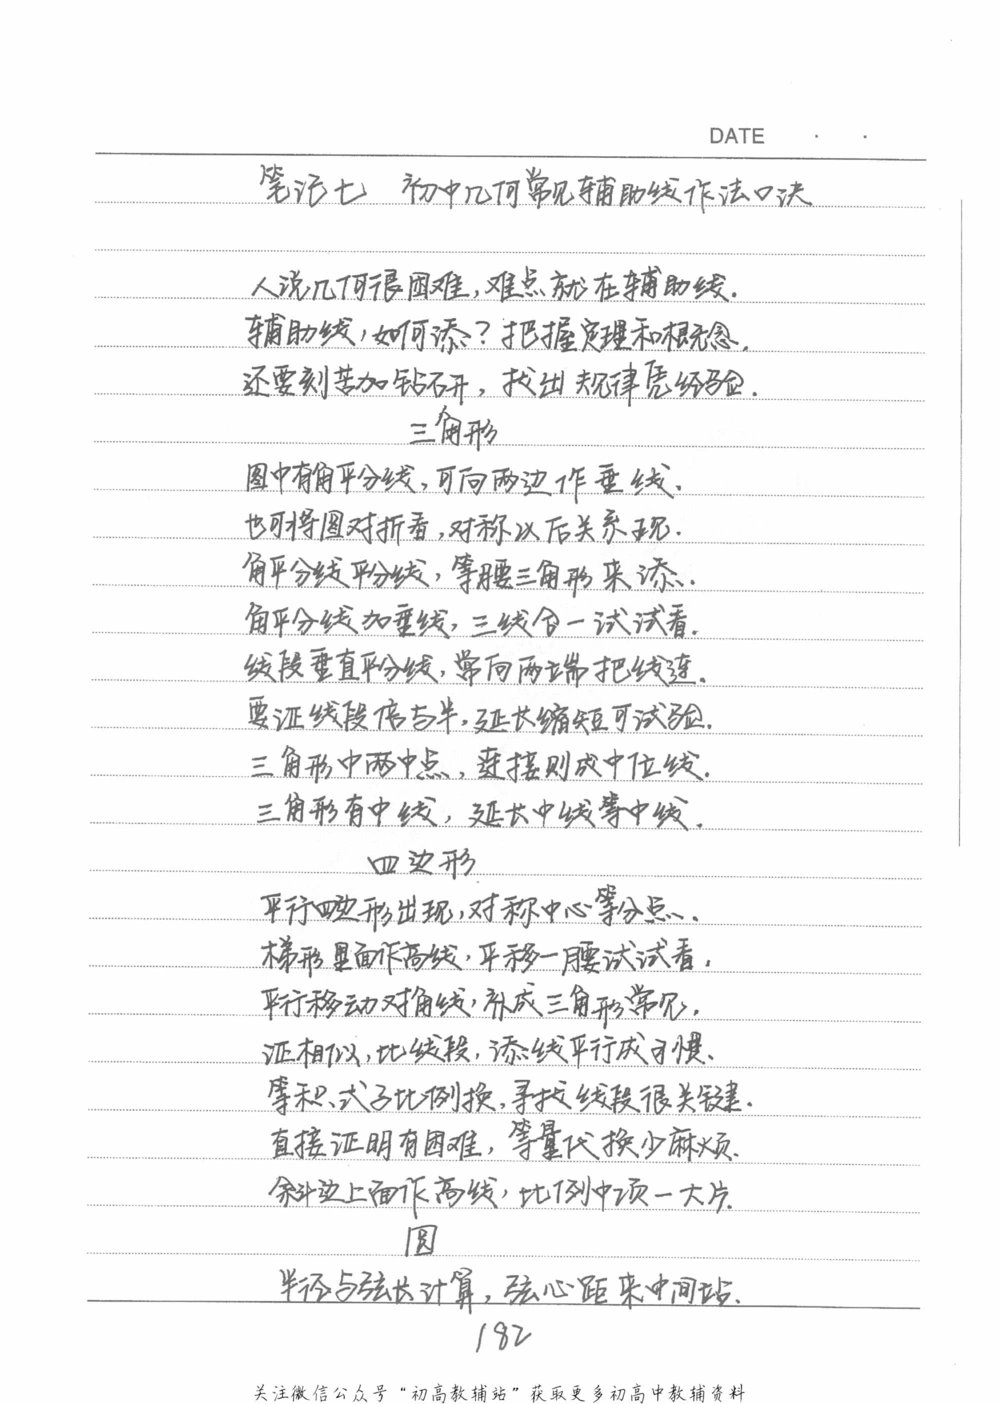 DATE · ·
笔记七 初中几何常见辅助线作法口决
人说几何很困难,难点就在辅助线.
辅助线,如何添?把握定理和概念.
还要刻苦加钻研,找出规律凭经验.
三角形
图中有角平分线,可向两边作垂线.
也可将图对折看,对称以后关系现.
角平分线平分线,等腰三角形来添.
角平分线加垂线,三线合一试试看.
线段垂直平分线,常向两端把线连.
要证线段倍与半,延长缩短可试验.
三角形中两中点,连接则成中位线.
三角形有中线,延长中线等中线.
四边形
平行四边形出现,对称中心等分点.
梯形里面作高线,平移一腰试试看.
平行移动对角线,补成三角形常见.
证相似,比线段,添线平行成习惯.
等积式子比例换,寻找线段很关键.
直接证明有困难,等量代换少麻烦.
斜边上面作高线,比例中项一大片.
圆
半径与弦长计算,弦心距来中间站.
182
关注微信公众号“初高教辅站”获取更多初高中教辅资料